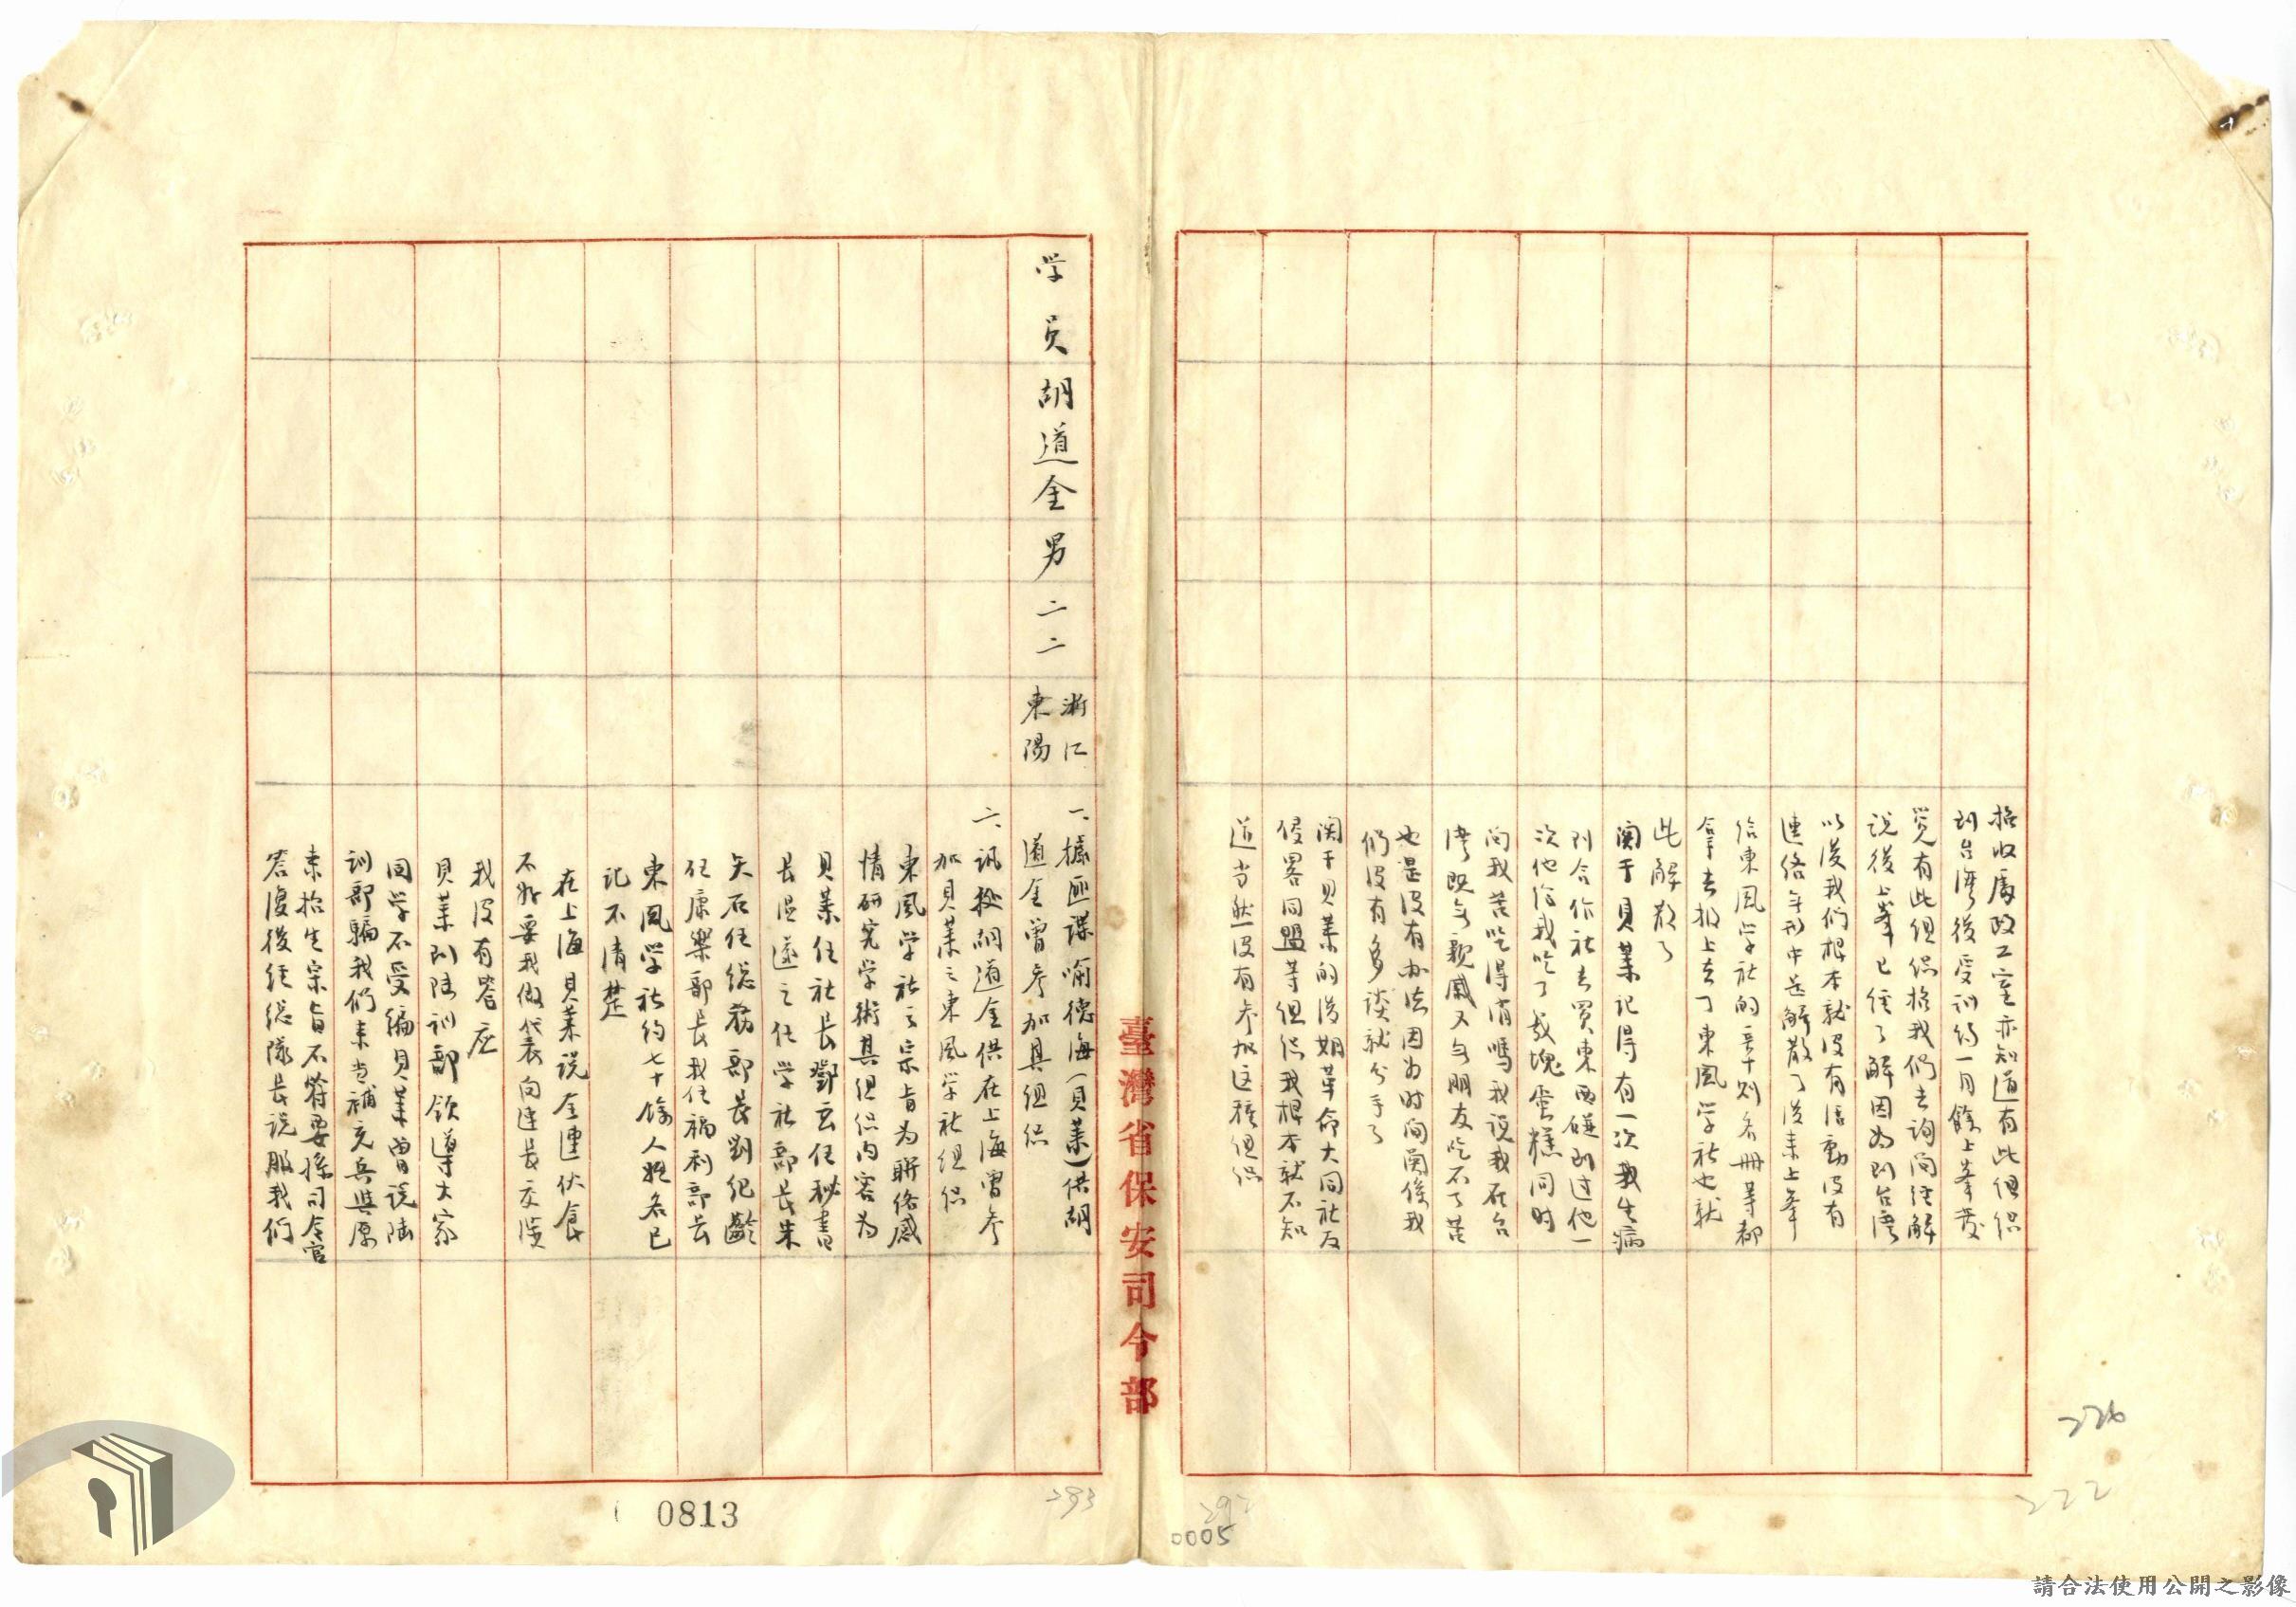 接收處政工室亦知道有此组织
到台湾後受训约一月餘上峯發
觉有此组织接我们去詢问经解
说後上峯已经了解因为到台湾
以後我们根本就没有活動没有
連络無形中是解散了後来上峯
給東風学社的章则名冊等都
拿去报上去了東風学社也就
此解散了
関于貝萊记得有一次我生病
到合作社去買東西碰到过他一
次他给我吃了幾塊蛋糕同时
问我苦吃得消嗎我说我在台
湾既無親戚又無朋友吃不了苦
也是没有办法因为时间関係我
们没有多谈就分手了
関于貝萊的後期革命大同社反
侵畧同盟等组织我根本就不知
道当然没有参加这種组织
臺灣省保安司令部
学员 胡道全 男 二二 浙江東陽
一、據匪諜喻德海(貝萊)供胡
道全曾参加其组织
二、訊據胡道全供在上海曾参
加貝萊之東風学社组织
東風学社之宗旨为联络感
情研究学術其组织内容为
貝萊任社長鄧玄任秘書
長温遂之任学社部長朱
矢石任総務部長劉纪齡
任康樂部長我任福利部長
東風学社约七十餘人姓名已
记不清楚
在上海貝萊说全連伙食
不好要我做代表向连長交涉
我没有答应
貝萊到陆训部领導大家
同学不受编貝萊曾说陆
训部騙我们来当補充兵與原
来招生宗旨不符要孫司令官
答復後经総隊長说服我们
0813
293
292
0005
226
222
請合法使用公開之影像